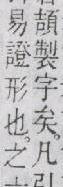 頡製字矣。凡引
易證形也。之